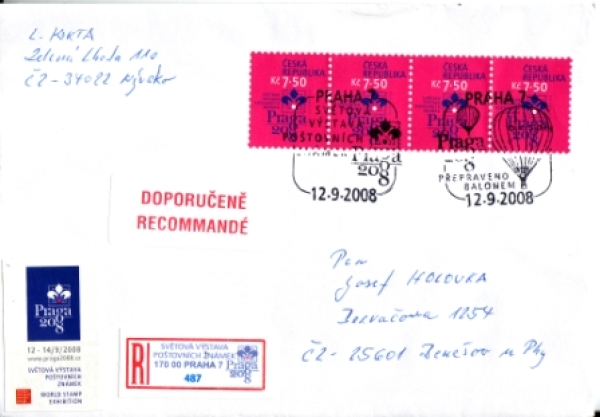 L. KORTA
Zelená Lhota 110
ČZ-34022 Nýrsko
ČESKÁ REPUBLIKA
Kč 7·50
ČESKÁ REPUBLIKA
Kč 7·50
ČESKÁ REPUBLIKA
Kč 7·50
ČESKÁ REPUBLIKA
Kč 7·50
PRAHA 7
SVĚTOVÁ
VÝSTAVA
POŠTOVNÍCH
Praga
2008
12-9-2008
PRAHA 7
Praga
2008
PŘEPRAVENO
BALONEM
12-9-2008
DOPORUČENĚ
RECOMMANDÉ
Pan
Josef HOLOVKA
1254
ČZ-25601 Benešov u Phy
Praga
2008
12 - 14/9/2008
www.praga2008.cz
SVĚTOVÁ VÝSTAVA
POŠTOVNÍCH
ZNÁMEK
WORLD STAMP
EXHIBITION
R
SVĚTOVÁ VÝSTAVA
POŠTOVNÍCH ZNÁMEK
170 00 PRAHA 7
487
Praga
2008